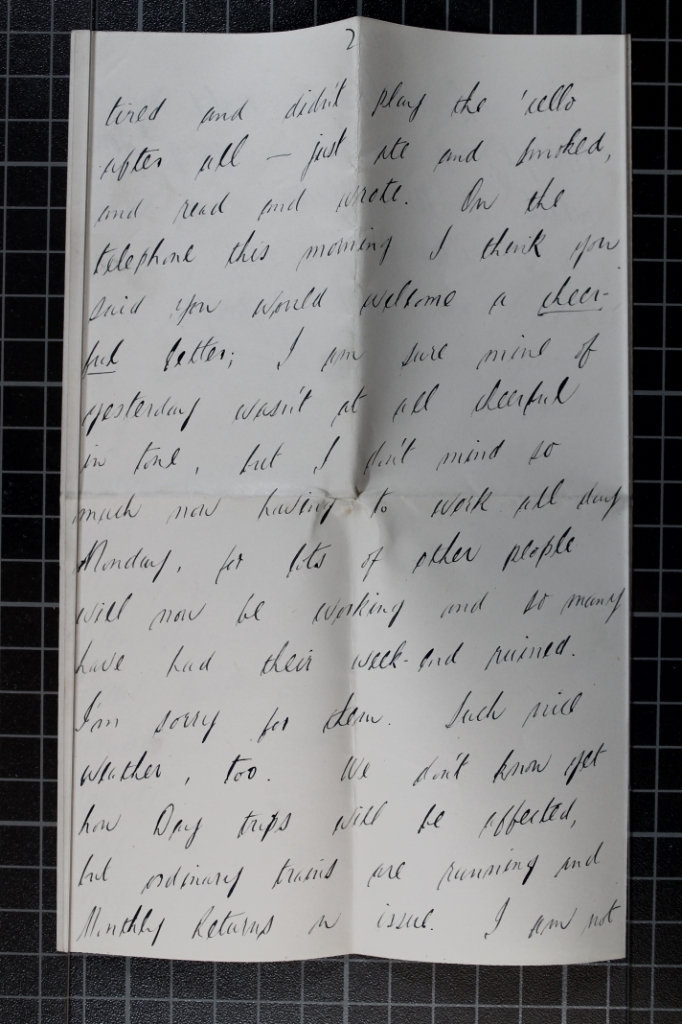 2
tired and didn't play the 'cello
after all — just ate and smoked,
and read and wrote. On the
telephone this morning I think you
said you would welcome a cheer-
ful letter; I am sure mine of
yesterday wasn't at all cheerful
in tone, but I don't mind so
much now having to work all day
Monday, for lots of other people
will now be working and so many
have had their week-end ruined.
I'm sorry for them. Such nice
weather, too. We don't know yet
how Day trips will be affected,
but ordinary trains are running and
Monthly Returns in issue. I am not